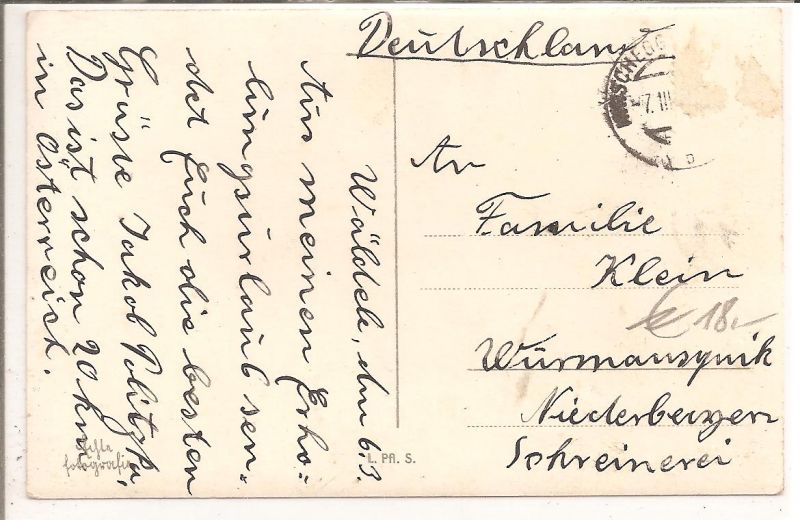 Deutschland
Wäldele, den 6.3.
Aus meinen Erho=
lungsurlaub sen=
det Euch die besten
Grüsse Jakob Politzka,
Das ist schon 20 km
in Österreich.
An
Familie
Klein
Wurmansquik
Niederbayern
Schreinerei
€ 18.-
SCHEGG
-7.III
b
Echte
Fotografie
L. Pfl. S.